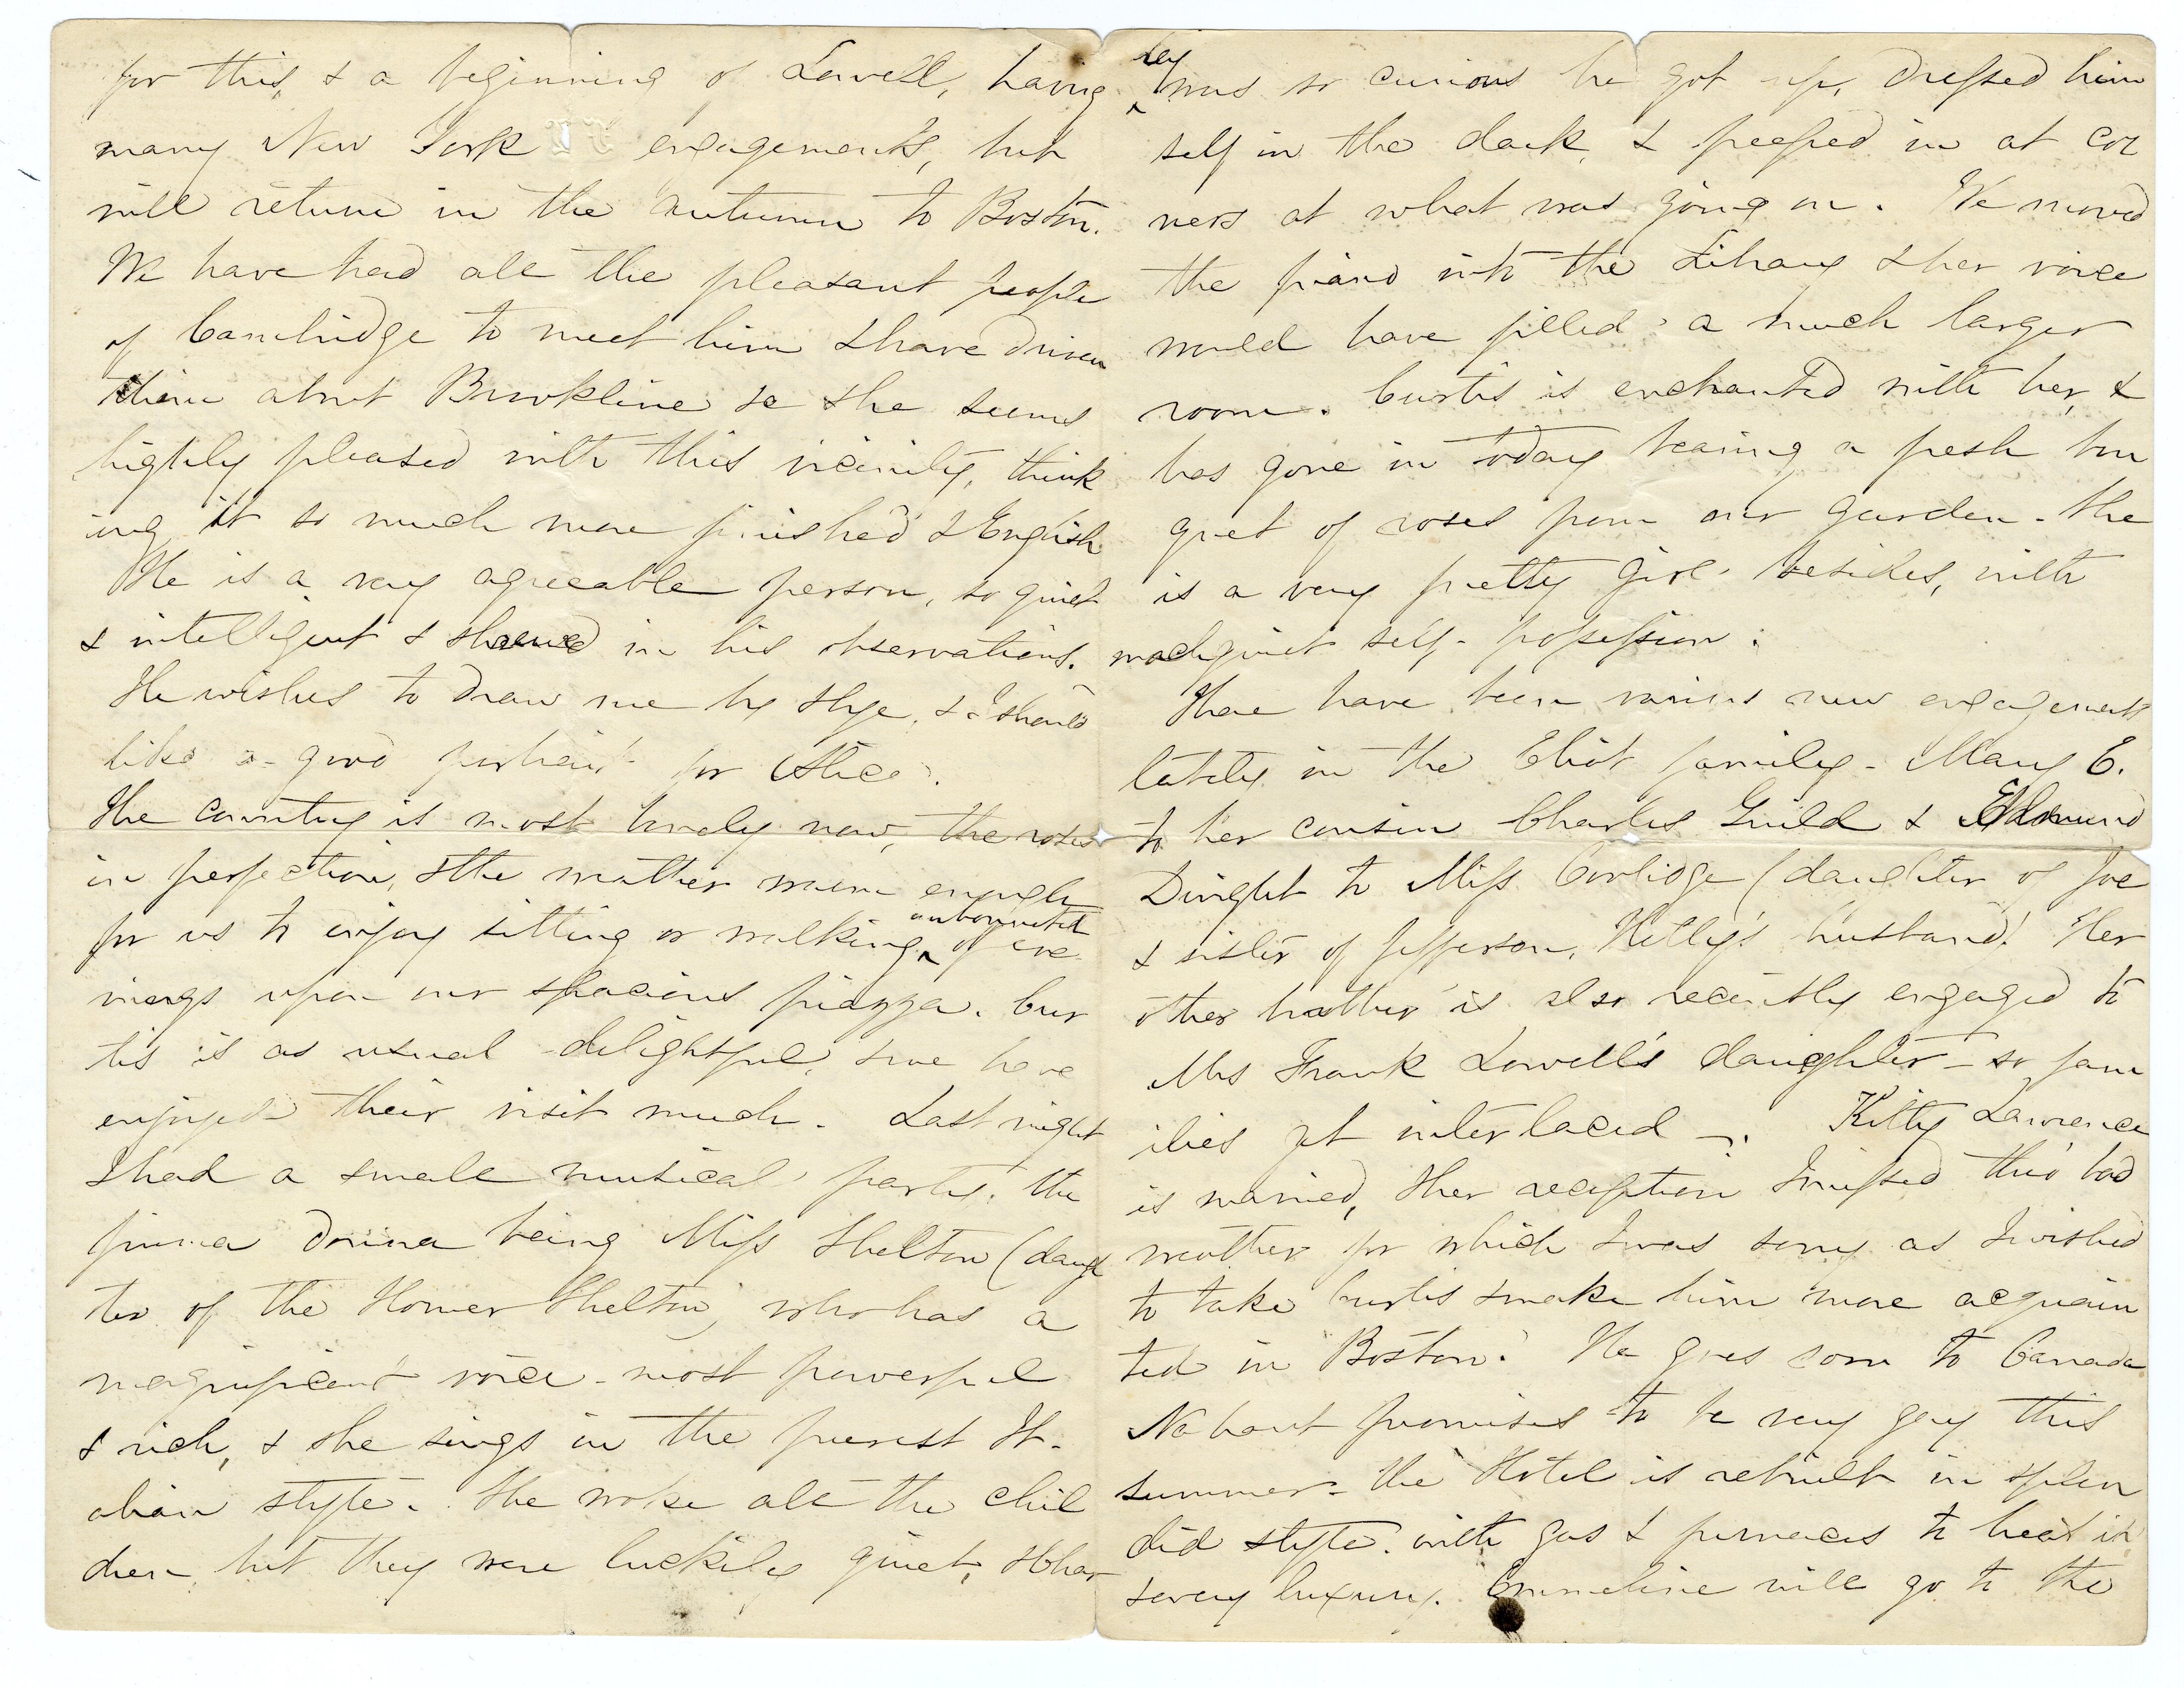 for this, & a beginning of Lowell, having
many New York engagements, but
will return in the autumn to Boston.
We have had all the pleasant people
of Cambridge to meet him & have driven
them about Brookline so she seems
highly pleased with this vicinity, think
ing it so much more finished & English
He is a very agreeable person, so quiet
& intelligent & shrewd in his observations.
He wishes to draw me by & I should
like a good portrait for Alice.
The country is most lovely now, the roses
in perfection, & the weather warm enough
for us to enjoy sitting or walking ‸ unbonneted of eve
nings upon our spacious piazza. Cur
tis is as usual delightful, & we have
enjoyed their visit much. Last night
I had a small musical party, the
prima donna being Miss Shelton (daugh
ter of the Homer Shelton) who has a
magnificent voice - most powerful
& rich, & she sings in the purest It-
alian style. She woke all the chil
dren, but they were luckily quiet, & Char
‸ ley was so curious he got up, dressed him
self in the dark, & peeped in at cor
ners at what was going on. We moved
the piano into the Library & her voice
would have filled a much larger
room. Curtis is enchanted with her, &
has gone in today bearing a fresh bou
quet of roses from our garden - She
is a very pretty girl besides, with
much quiet self-possession.
There have been various new engagements
lately in the Eliot family - Mary E.
to her cousin Charles Guild & Edmund
Dwight to Miss Coolidge (daughter of Joe
& sister of Jefferson, Hetty's husband. Her
other brother is also recently engaged to
Mrs Frank Lowell's daughter - so fam
ilies get interlaced -. Kitty Lawrence
is married, Her reception I missed thro' bad
weather for which I was sorry as I wished
to take Curtis & make him more acquain
ted in Boston. He goes soon to Canada
Nahant promises to be very gay this
summer - the Hotel is rebuilt in splen
did style. with gas & furnaces to heat it
& every luxury. Emmeline will go to the